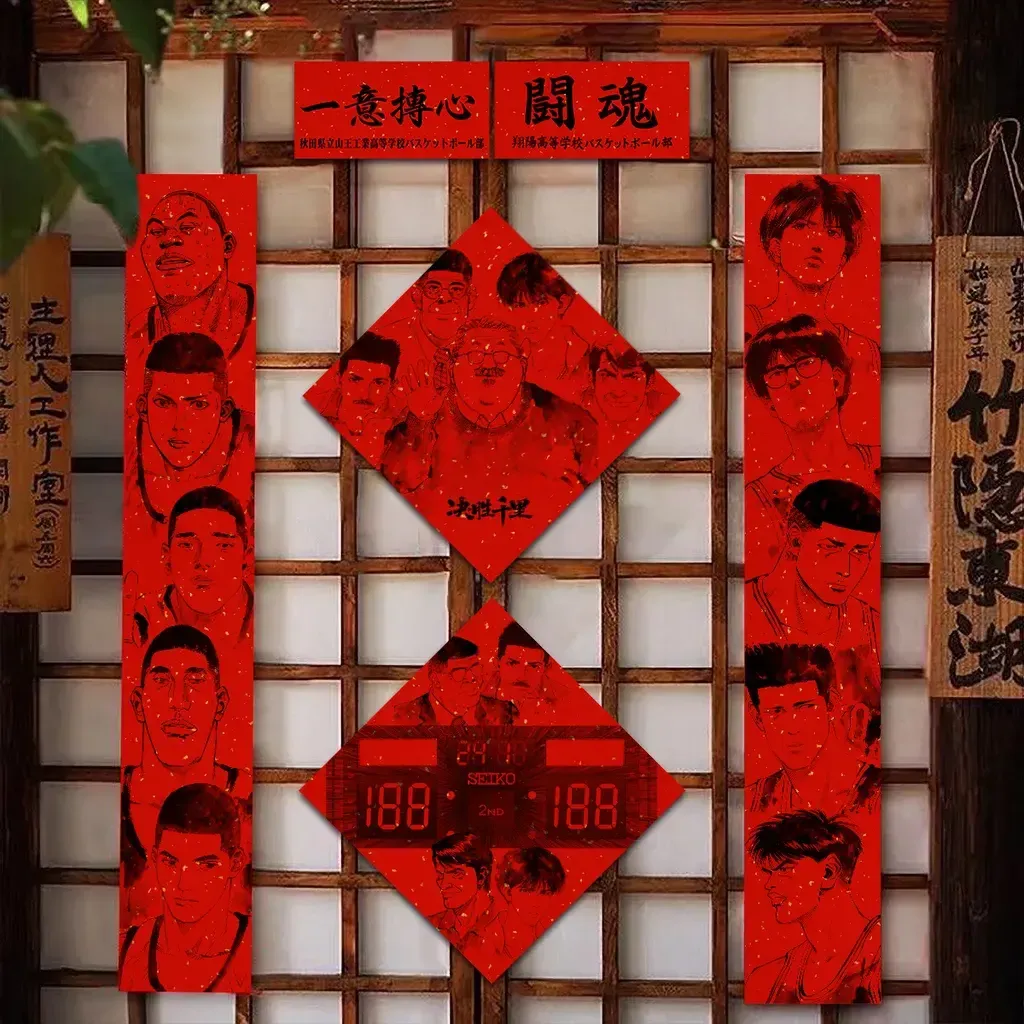 一意摶心
秋田県立山王工業高等学校バスケットボール部
闘魂
翔陽高等学校バスケットボール部
决胜千里
SEIKO
188
2ND
188
主理人工作室
始建庚子年
竹隱東湖